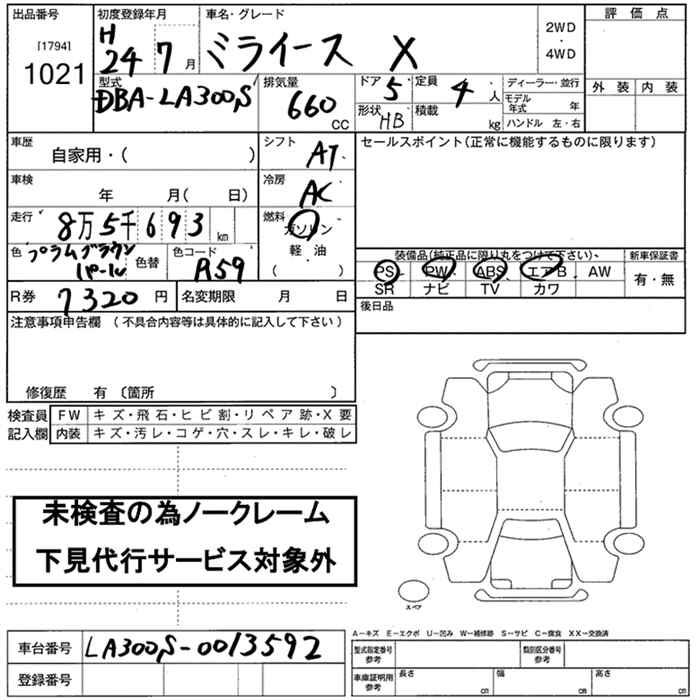 出品番号
[1794]
1021
初度登録年月
H
24 7 月
車名・グレード
ミライース X
2WD
・
4WD
評価点
外装 内装
型式
DBA-LA300S
排気量
660
CC
ドア 5
形状 HB
定員 4 人
積載 kg
ディーラー・並行
モデル年式 年
ハンドル 左・右
車歴
自家用・( )
シフト AT
セールスポイント(正常に機能するものに限ります)
車検
年 月( 日)
冷房 AC
走行
8万5千693 km
燃料
ガソリン
軽・油
( )
色 プラムブラウン
パール
色替
色コード
R59
装備品(純正品に限り丸をつけて下さい)、
PS PW ABS エアB AW
SR ナビ TV カワ
新車保証書
有・無
R券 7320 円
名変期限 月 日
後日品
注意事項申告欄 (不具合内容等は具体的に記入して下さい)
修復歴 有〔箇所 〕
検査員
記入欄
FW キズ・飛石・ヒビ割・リペア跡・X要
内装 キズ・汚レ・コゲ・穴・スレ・キレ・破レ
未検査の為ノークレーム
下見代行サービス対象外
スペア
A−キズ E−エクボ U−凹み W−補修跡 S−サビ C−腐食 XX−交換済
車台番号 LA300S-0013592
登録番号
型式指定番号
参考
類別区分番号
参考
車庫証明用
参考
長さ cm
幅 cm
高さ cm